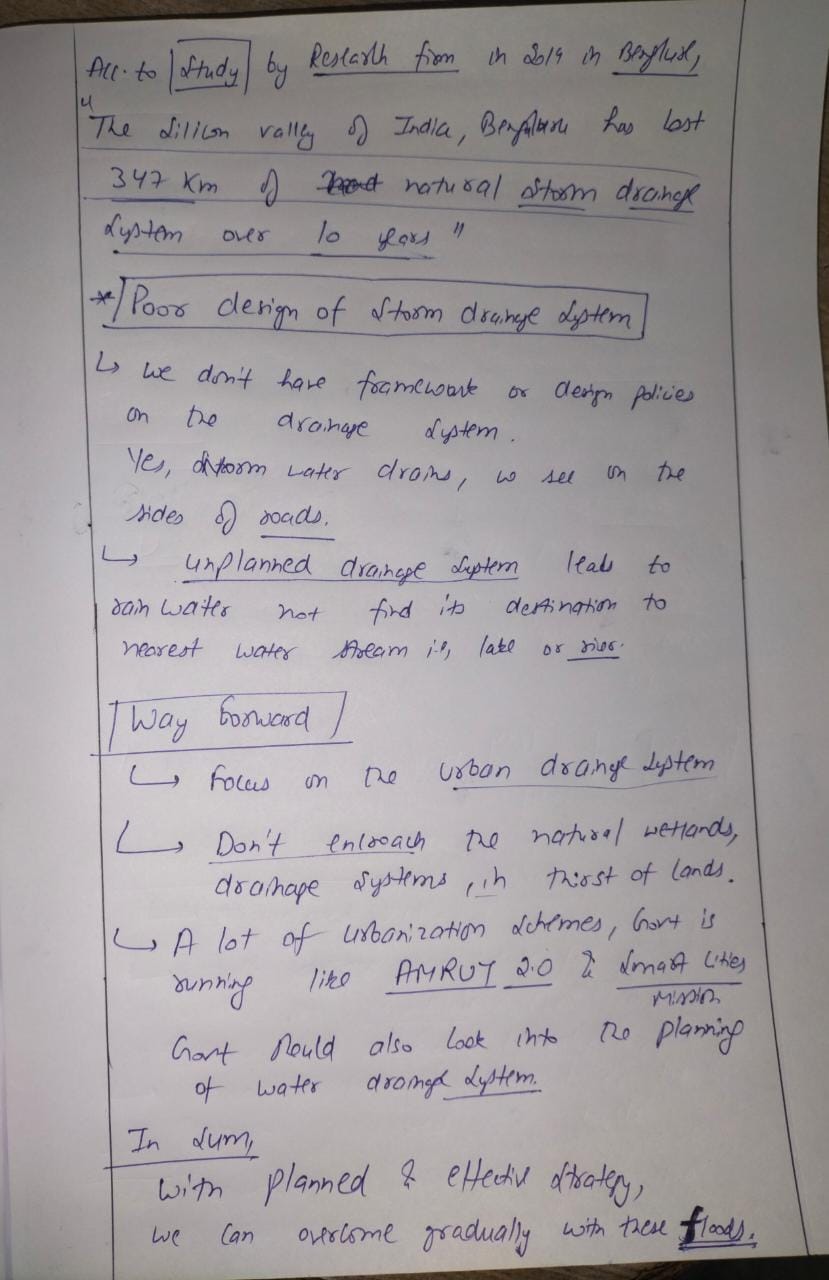 Acc. to Study by Research firm in 2019 in Bengluru,
"The Silicon valley of India, Bengaluru has lost
347 Km of natural storm drainage
System over 10 years"
* Poor design of Storm drainage System
↳ we don't have framework or design policies
on the drainage System.
Yes, storm water drains, we see on the
sides of roads.
↳ unplanned drainage system leads to
rain water not find its destination to
nearest water stream i.e, lake or river.
Way forward
↳ Focus on the urban drainge System
↳ Don't encroach the natural wetlands,
drainage systems, in thirst of lands.
↳ A lot of urbanization schemes, Govt is
running like AMRUT 2.0 & Smart Cities
Mission
Govt should also look into the planning
of water drainage System.
In sum,
with planned & effective strategy,
we can overcome gradually with these floods.